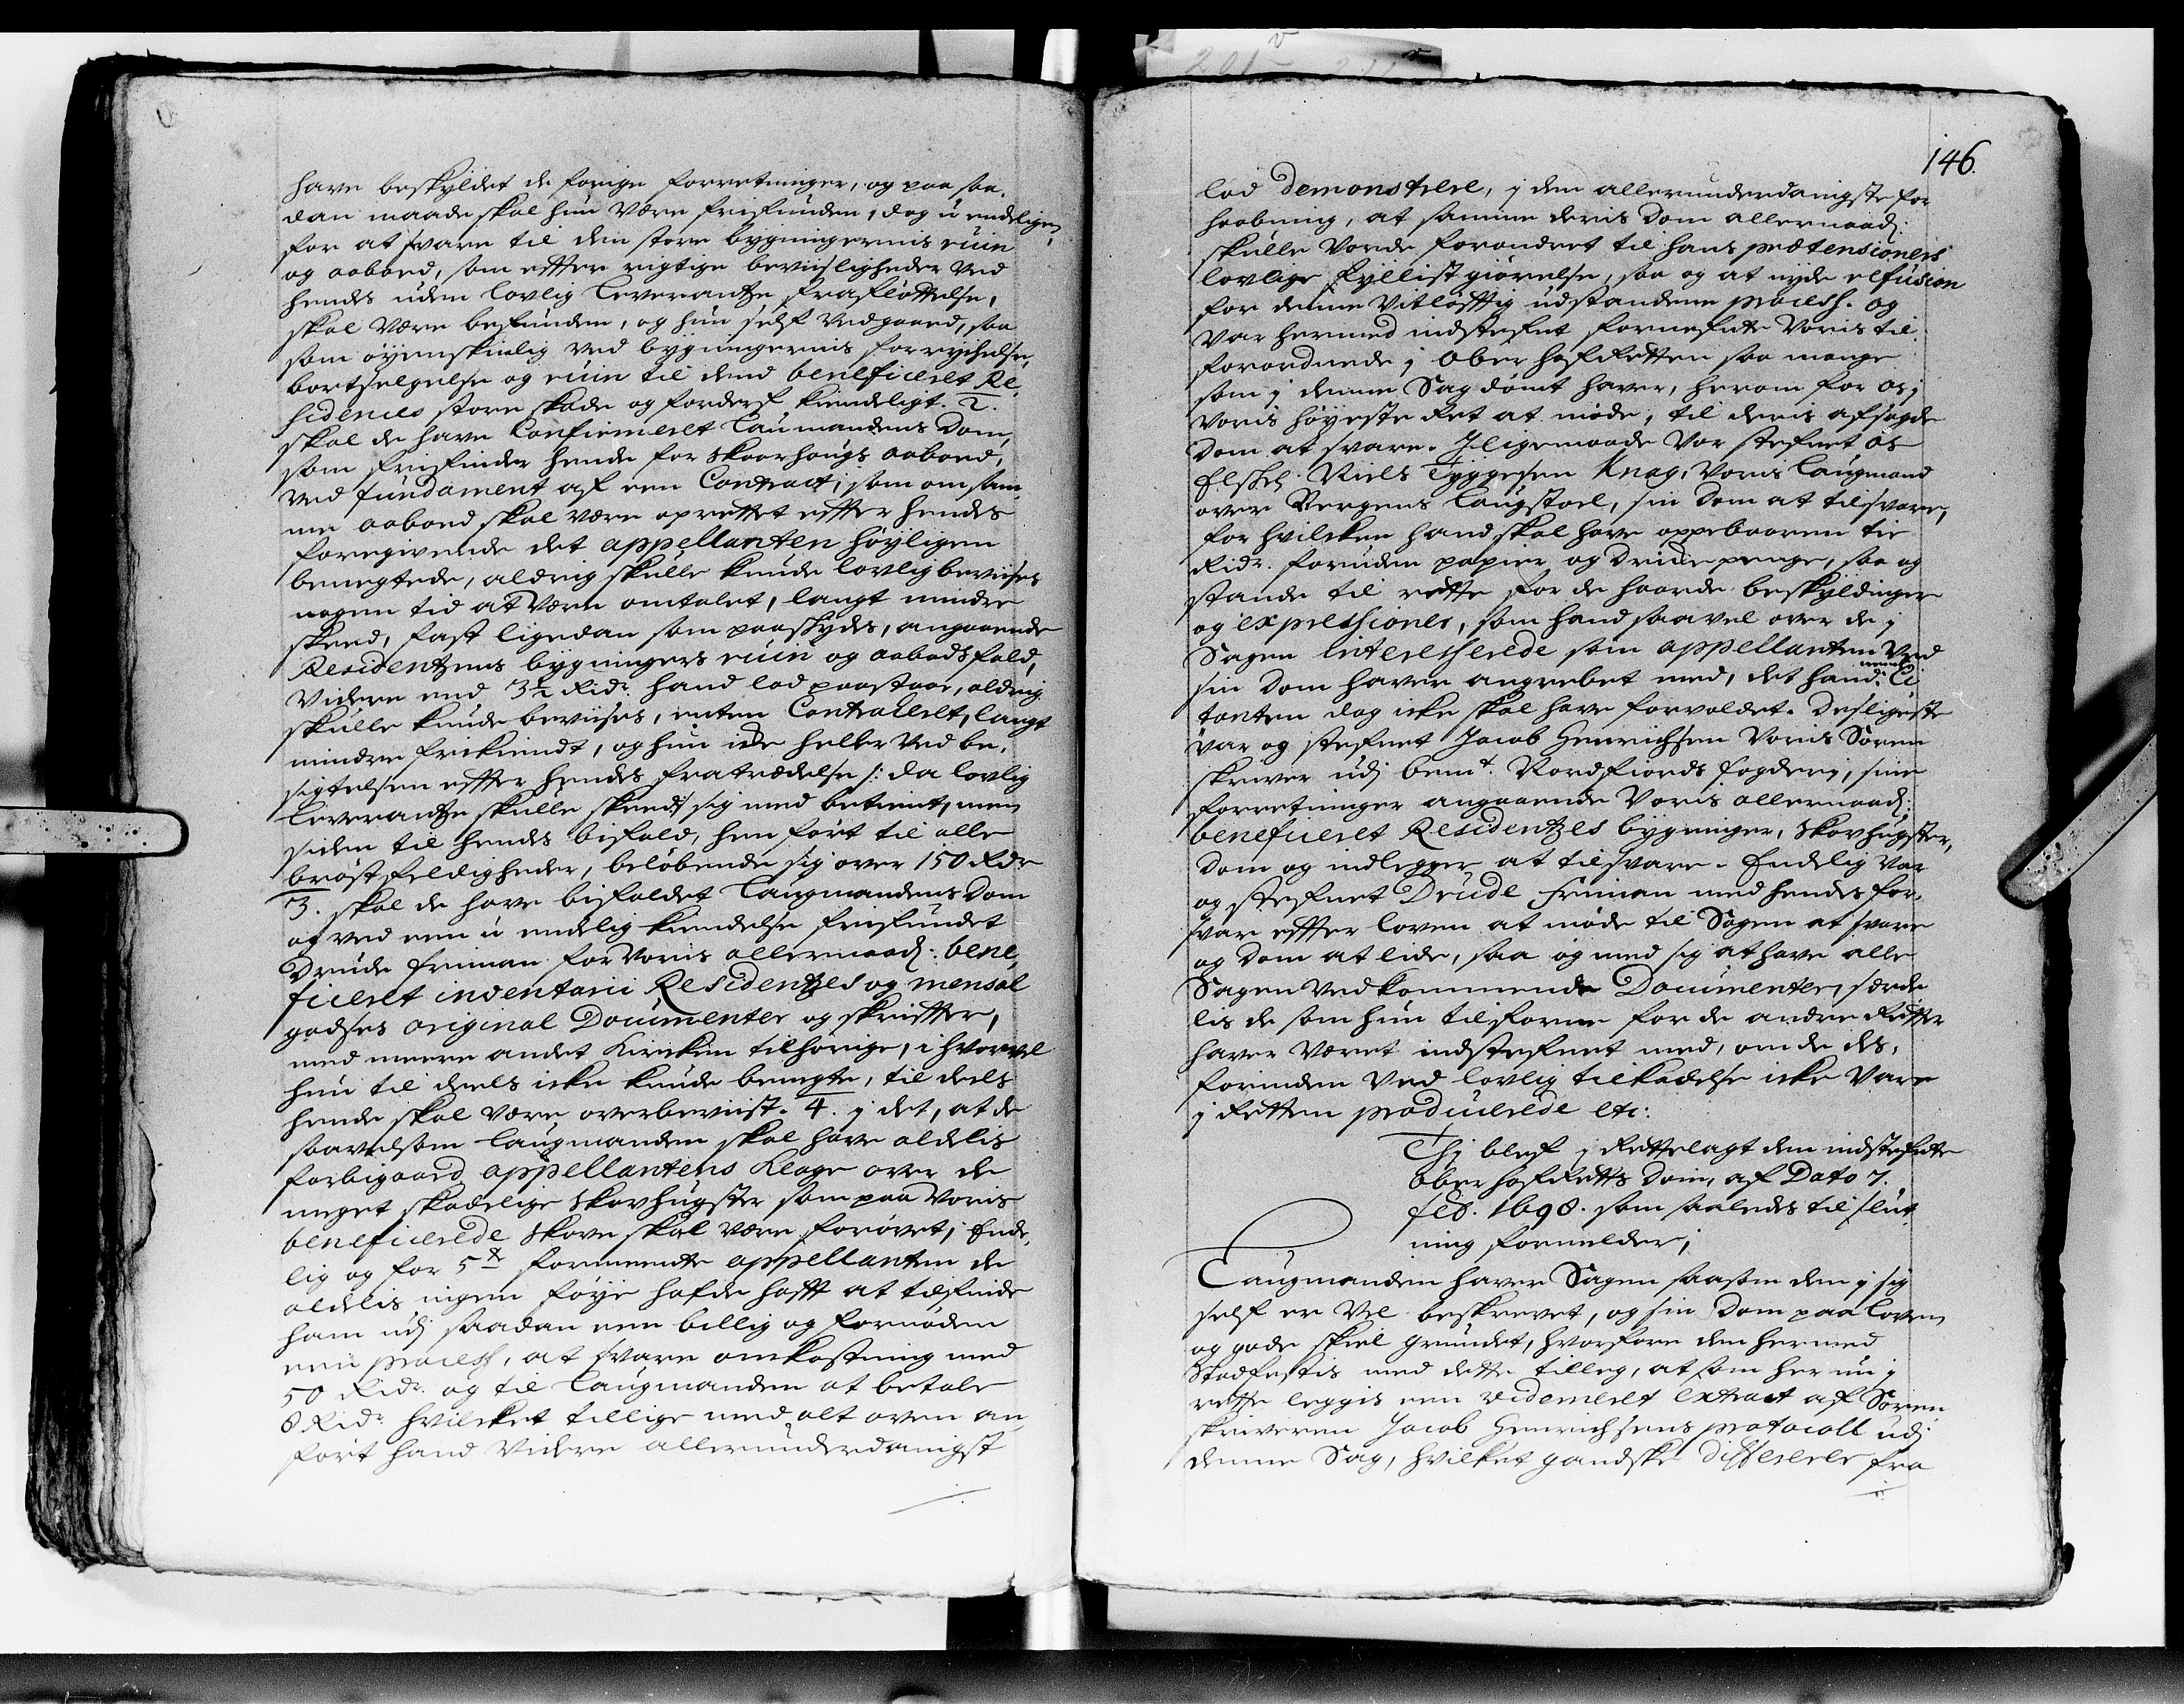 have beskyldet de forige forretninger, og paa saa,
dan maade skal hun være frifunden, dog u endeligen,
for at svare til den store bygningernis ruin
og aaboed, som effter rigtige beviisligheder ved
hendes uden lovlig leverantze frafløttelse,
skal være befunden, og hun self vedgaaed, saa
som øyenskinlig ved bygningernis forryckelse,
bortselgelse og ruin til dend beneficeret Re,
sidences store skade og forderf kiendeligt. 2.
skal de have Confirmeret Laumandens dom,
som frifinder hende for skoerhougs aaboed,
ved fundament af een Contract, som om sam,
me aaboed skal være oprettet effter hendes
foregivende det appellanten høyligen
benegtede, aldrig skulle kunde lovlig bevises
nogen tid at være omtalet, langt mindre
skeed, fast ligedan som paaskydes, angaaende
Residentzens bygningers ruin og aabods fald,
videre end 3½ Rdr. hand lod paastaae, aldrig
skulle kunde beviises, enten Contraheret, langt
mindre frikiendt, og hun icke heller ved be,
sigtelsen effter hendes fratrædelse /: da lovlig
leverantze skulle skeed :/ sig med betient, men
siden til hendes bifald, hen ført til alle
brøstfeldigheder, beløbende sig over 150 Rdr
3. skal de have bifaldet Laugmandens dom
at ved een u endelig kiendelse frifundet
Drude Friman for Voris allernaad: bene,
ficeret inventarii Residentzes og mensal
godses original Documenter og skriffter,
med meere andet Kircken tilhørige, i hvorvel
hun til deels icke kunde benegte, til deels
hende skal være overbeviist. 4. i det, at de
saavelsom Laugmanden skal have aldelis
forbigaaed appellantens Klage over de
meget skadelige skovhugster som paa Voris
beneficerede skove skal være forøvet; Ende,
lig og for 5te formeente appellanten de
aldelis ingen føye hafde hafft at tilfinde
ham udj saadan een billig og fornøden
een process, at svare omkostning med
50 Rdr. og til Laugmanden at betale
8 Rdr. hvilcket tillige med alt oven an,
ført hand videre allerunderdanigst
146.
lod demonstrere, i den allerunderdanigste for
haabning, at samme deris dom allernaad:
skulle vorde forandret til hans prætensioners
lovlige fyllistgiørelse, saa og at nyde refusion
for denne vitløfftig udstandene process. og
var hermed indstefnet fornefnte Voris til
forordnede i Ober hofRetten saa mange
som i denne Sag dømt haver, herom for os i
Voris høyeste Ret at møde, til deris afsagde
dom at svare. Iligemaade var stefnet os
Elskel: Niels Tyggesen Knag, Voris Laugmand
over Bergens Laugstoel, sin dom at tilsvare,
for hvilcken hand skal have oppebaaren tie
Rdr. foruden papier og Dricke penge, saa og
stande til rette for de haarde beskyldinger
og expressioner, som hand saavel over de i
Sagen interesserede som appellanten ved
sin dom haver angrebet med, det hand nemlig Ci
tanten dog icke skal have forvoldet. desligeste
var og stefnet Jacob Henrichsen Voris Soren
skriver udj bemte. Nordfiords fogderi, sine
forretninger angaaende Voris allernaad:
beneficeret Residentzes bygninger, skovhugster,
dom og indlegger at tilsvare. Endelig var
og stefnet Drude Friman med hendes for,
svar effter loven at møde til Sagen at svare
og dom at lide, saa og med sig at have alle
Sagen vedkommende Documenter, særde
lis de som hun tilforne for de andre Retter
haver været indstefnet med, om de des,
forinden ved lovlig tilkaldelse icke vare
i Retten producerede etc:
Thj blef i Rettelagt den indstefnte
Ober hofRetts dom, af Dato 7.
feb. 1698. som saaledes til slut
ning formelder;
Laugmanden haver Sagen saasom den i sig
self er vel beskrevet, og sin dom paa loven
og gode skiel grundet, hvorfore den hermed
stadfestis med dette tilleg, at som her nu i
rette leggis een videmeret extract af Soren
skriveren Jacob Henrichsens protocoll udj
denne Sag, hvilket gandske differerer fra